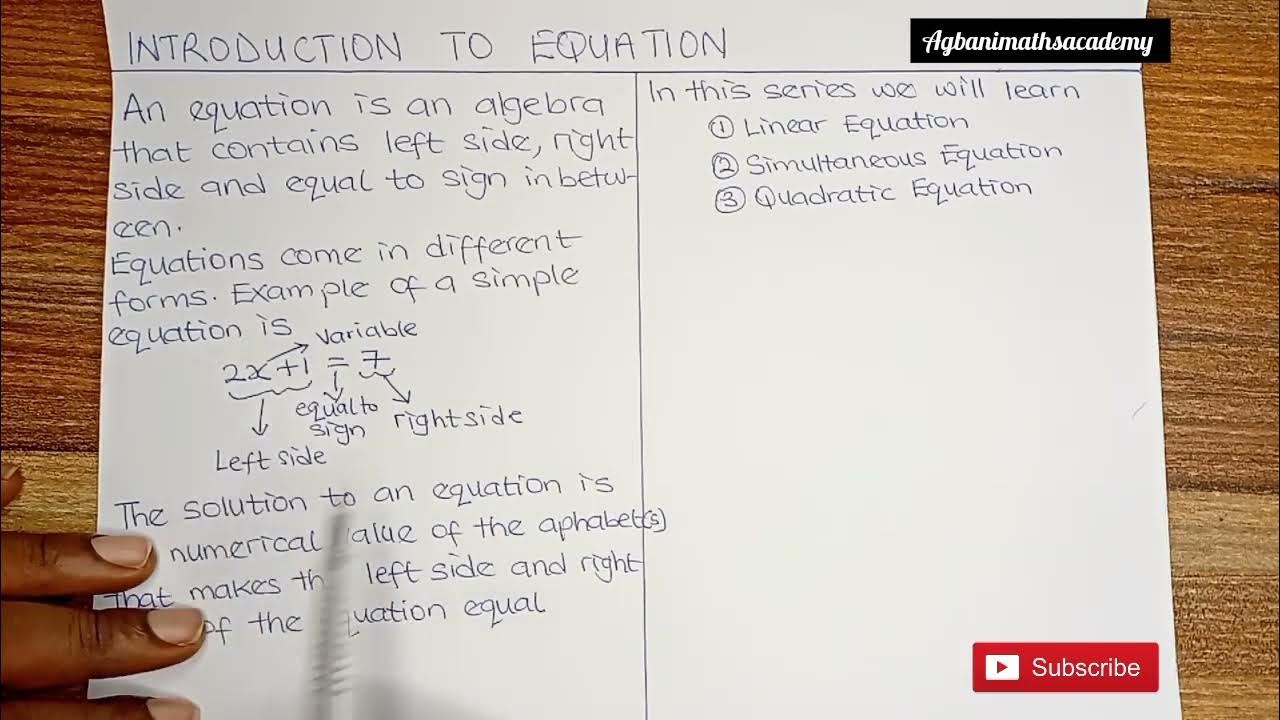 INTRODUCTION TO EQUATION
Agbanimathsacademy
An equation is an algebra
that contains left side, right
side and equal to sign in betw-
een.
Equations come in different
forms. Example of a simple
equation is
variable
2x+1 = 7
equal to
sign
right side
Left side
The solution to an equation is
numerical value of the aphabet(s)
that makes left side and right
of the equation equal
In this series we will learn
① Linear Equation
② Simultaneous Equation
③ Quadratic Equation
Subscribe